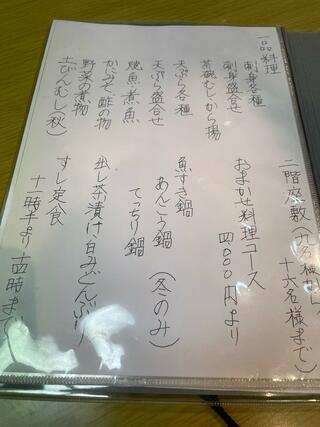 一品料理
刺身各種
刺身盛合せ
茶碗むし から揚
天ぷら各種
天ぷら盛合せ
焼魚 煮魚
かにみそ、酢の物
野菜の煮物
土びんむし(秋)
二階座敷(九名様から
十六名様まで)
おまかせ料理コース
四000円より
魚すき鍋
あんこう鍋
てっちり鍋
(冬のみ)
出し茶漬け 白みどんぶり
すし定食
十一時半より